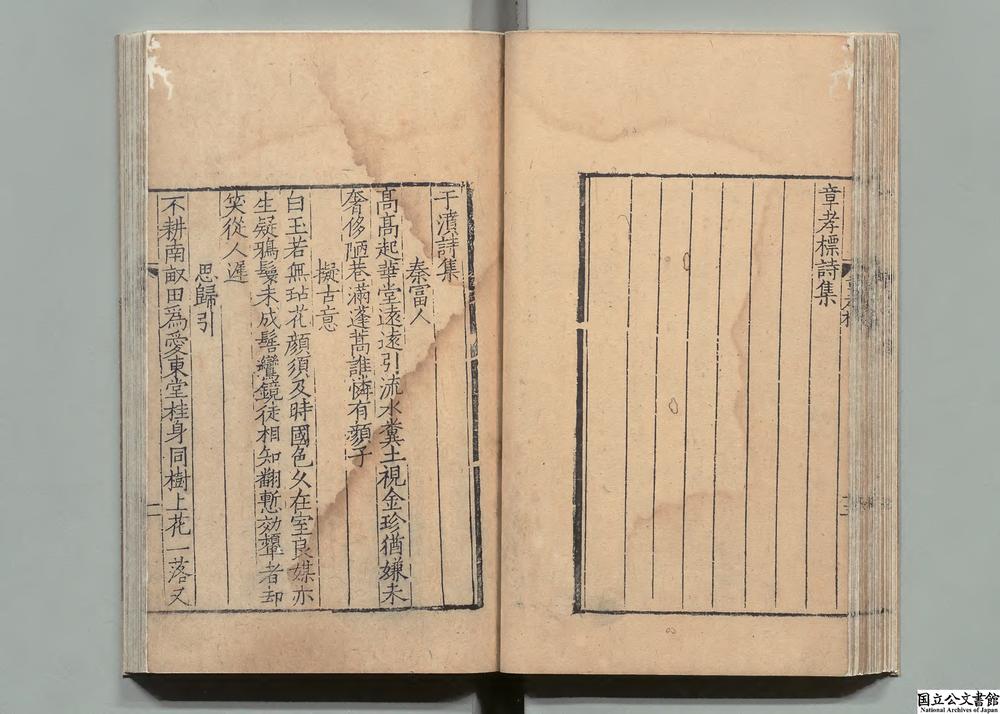 章孝標詩集
于濆詩集
秦富人
高高起華堂遠遠引流水糞土視金珍猶嫌未
奢侈陋巷滿蓬蒿誰憐有顏子
擬古意
白玉若無玷花顏須及時國色久在室良媒亦
生疑鴉鬟未成髻鸞鏡徒相知翻慙効顰者却
笑從人遲
思歸引
不耕南畝田為愛東堂桂身同樹上花一落又
一
国立公文書館
National Archives of Japan